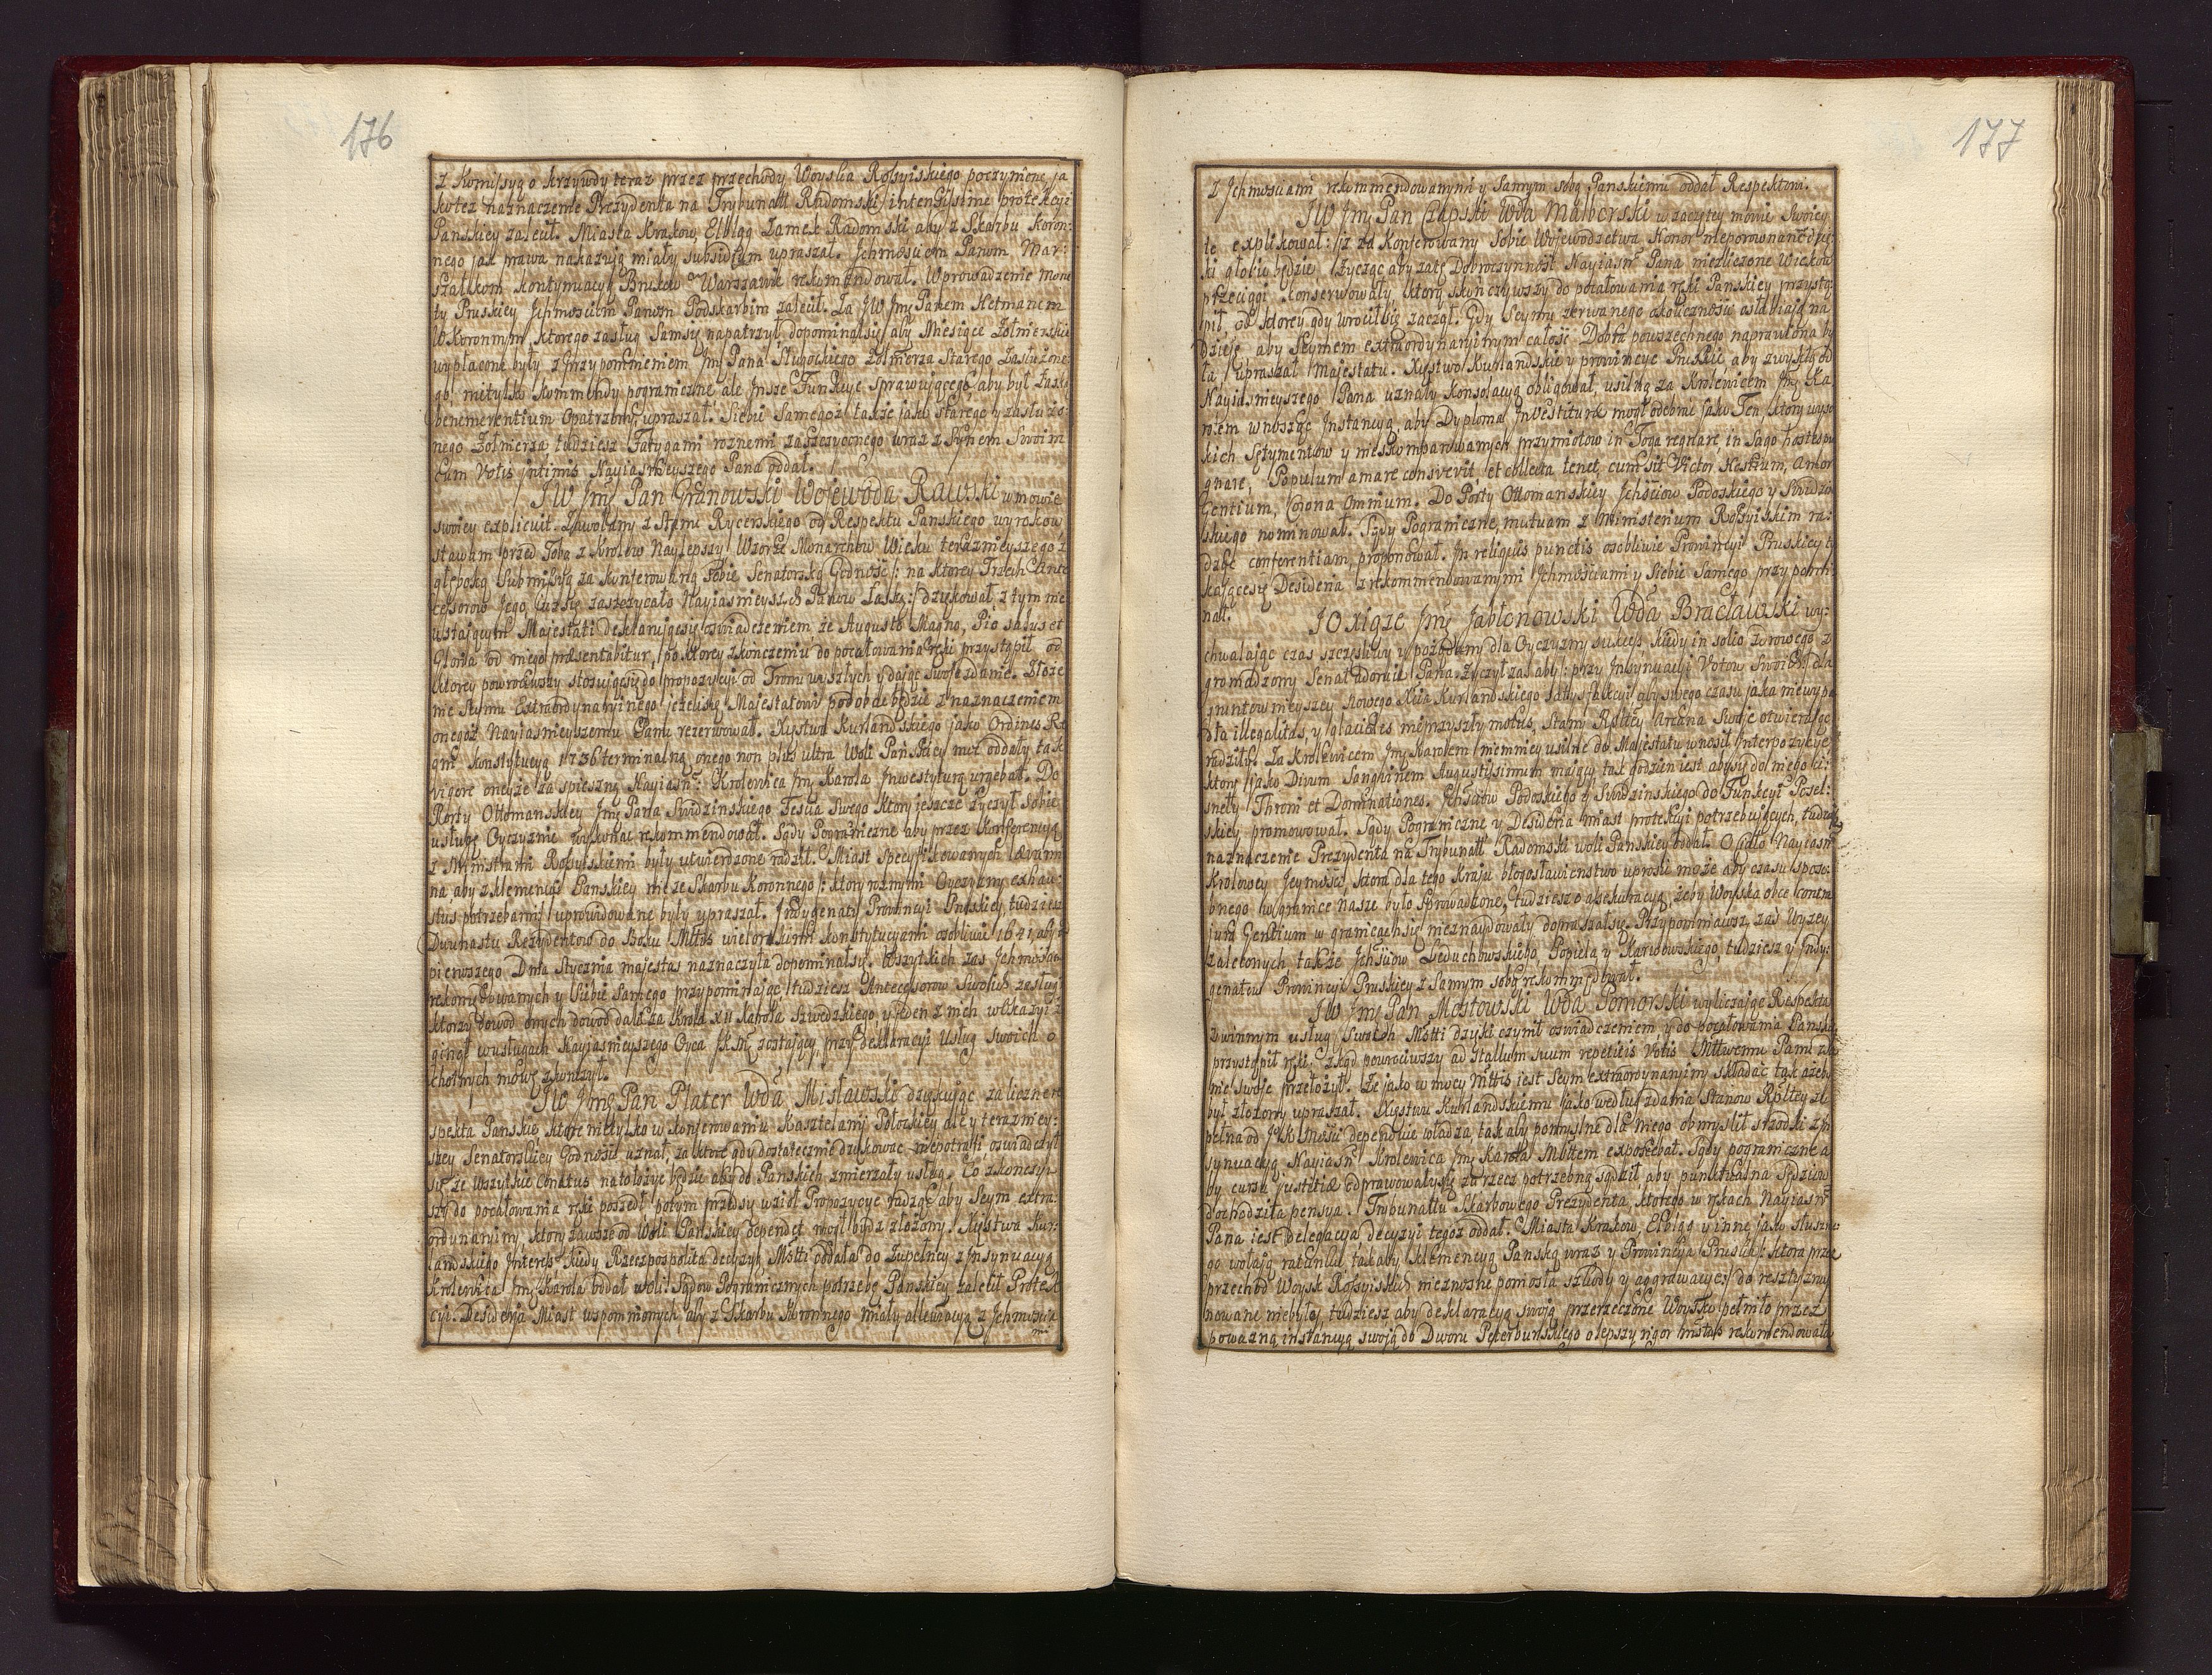 176
z Komissyą o krzywdy teraz przez przechody Woyska Rossyiskiego poczynione, ja
kotez naznaczenie Prezydenta na Trybunall Radomski intensissime protekcyi
Panskiey zalecił. Miasta Krakow, Elbląg Zamek Radomski aby z Skarbu Koron:
nego jak prawa nakazują miały subsidium upraszał. Jchmosciom Panom Mar:
szałkom kontynuacyą Brukow w Warszawie rekomendował. Wprowadzenie Mone
ty Pruskiey Jchmosciom Panom Podskarbim zalecił. Za JW Jmć Panem Hetmanem
W Koronnym, ktorego zasług Samsię napatrzył dopominałsię aby Miesiące Zołnierskie
wypłacone były z przypomnieniem Jmć Pana Zołnierza Starego Zasłużone:
go, nietylko kommendy pograniczne ale Jnsze Funkcye sprawuiącego, aby był Łaską
benemerentium opatrzony, upraszał. Siebie Samegoz także jako starego y zasłużo:
nego Zołnierza tudziesz Fatygami roznemi zaszczyconego wraz z Synem Swoim
cum Votis intimis Nayiasnieyszego Pana oddał.
JW Jmć Pan Granowski Wojewoda Rawski w mowie
swoiey explicuit. Zawołany z Stanu Rycerskiego od Respektu Panskiego wyrokow
stawam przed Tobą z Krolow Naylepszy Wzorze Monarchow Wieku teraznieyszego z
głęboką Submissyą za konferowaną sobie Senatorską Godność: na ktorey Trzech Ante
cessorow Jego Łaską: dziękował, z tym nie
ustającym Majestati deklarującsię oswiadczeniem że Augusto Magno, Pio salus et
Gloria od niego præsentabitur, po ktorey zkonczeniu do pocałowania ręki przystąpił od
ktorey powrociwszy stosującsię do propozycyi od Tronu wyszłych y dając swoje zdanie. Złoże
nie Seymu Extraordynaryinego jezeli się Majestatowi podobac będzie z naznaczeniem
onegoz Nayiasnieyszemu Panu rezerwował. Xięstwa Kurlandskiego jako Ordines Rz
Konstytucyą 1736 terminalną onego non plus ultra Woli Panskiey moc oddały tak
vigore oneyze za spieszną Nayiasn: Krolewica Jmć Karola Jnwestyturą urgebat. Do
Porty Ottomanskiey Jmć Pana Swidzinskiego Tescia swego ktory jeszcze zyczył sobie
usługę Oyczyznie wykonac rekommendował. Sądy Pograniczne aby przez Konferencyą
z Ministrami Rossyiskiemi były utwierdzone radził. Miast specyfikowanych ærumi
na, aby z klemencyi Panskiey nie ze Skarbu Koronnego: ktory roznymi Oyczyzny exhau:
stus potrzebami: uprowidowane były upraszał. Jndygenaty Prowincyi Pruskiey, tudziesz
Dwunastu Rezydentow do Boku Mttis wielorakimi konstytucyami osobliwie 1641, aby od
pierwszego Dnia Stycznia majestas naznaczyła dopominałsię. Wszytkich zas Jchmosciow
rekomędowanych y Siebie Samego przypominając tudziesz Antecessorow Swoich zasług
ktorzy dowod onych dowod dali za Krola XII Karola Szwedzkiego, y ieden z nich
ginął w usługach Nayiasnieyszego Oyca JKM zostający, przy deklaracyi Usług Swoich o
chotnych mowę zkonczył.
JW Jmć Pan Plater Wda Mscisławski dziękując za liczne re
spekta Panskie, ktore nietylko w konferowaniu Kasztelanij Połockiey ale y terazniey:
szey Senatorskiey Godnosci uznał, za ktore gdy dostatecznie dziękowac niepotrafi, oswiadczył
się że Wszytkie Conatus natołożyc będzie aby do Panskich zmierzały usług. Co zkonczyw
szy do pocałowania ręki poszedł potym przedsię wziół Propozycye radząc aby Seym extra:
ordynaryiny, ktory zawsze od Woli Panskiey dependet mogł bydz złożony. Xięstwa Kur:
landskiego Jnteress kiedy Rzeczpospolita decyzyi Mttti oddała do zupełney z Jnsynuacyą
Krolewica Jmć Karola oddał woli. Sądow Pogranicznych potrzebę Panskiey zalecił Protek
cyi. Desideria Miast wspomnionych, aby z Skarbu Koronnego miały allewiacyą z Jchmoscia
mi

177
z Jchmosciami rekommendowanymi y Samym sobą Panskiemu oddał Respektowi.
JW Jmć Pan Czapski Wda Malborski w zaczętey mowie Swoiey
te explikował: iz za Konferowany Sobie Wojewodztwa Honor nieporownane dzię:
ki głosic będzie życząc aby zatę Dobroczynność Nayiasn: Pana niezliczone Wiekow
przeciągi konserwowały, ktorą skonczywszy do pocałowania ręki Panskiey przystą:
pił, od ktorey gdy wrociłsię zaczął. Gdy Seymu zerwanego okoliczność osłabiają na
dzieję aby Seymem extraordynaryinym całość Dobra powszechnego naprawiona by
ła, upraszał Majestatu. Xięstwo Kurlandskie y prowincye Pruskie, aby zwykłą od
Nayiasnieyszego Pana uznały Konsolacyą obligował, usilną za Krolewicem Jmć Ka
rolem wnosząc Jnstancyą, aby Dyploma Jnvestiturae mogł odebrac jako Ten, ktory wyso
kich Sętymentow y nieskomparowanych przymiotow in Toga regnare, in Sago hostes pu
gnare, Populum amare consvevit, et collecta tenet, cum sit Victor Hostium, Amor
Gentium, Corona Omnium. Do Porty Ottomanskiey Jchsciow Podoskiego y Swidzi
skiego nominował. Sądy Pograniczne, mutuam z Ministerium Rossyiskim ra:
dząc conferentiam, proponował. Jn reliquis punctis osobliwie Prowincyi Pruskiey ty
kającesię Desideria z rekommendowanymi Jchmosciami y Siebie Samego przypomi
nał.
JO Xiąze Jmć Jabłonowski Wda Bracławski wy:
chwalając czas szczęsliwy y pożądany dla Oyczyzny sukcess kiedy in solio zdrowego z
gromadzony Senat adorat Pana. Życzył zas aby: przy Jnsynuacyi Votow Swoich: dla
gruntownieyszey nowego Xcia Kurlandskiego satysfakcyi aby swego czasu jaka niewypa
dła illegalitas, y glaciales mimprzyszły motus, Stany Rpltey Arcana Swoje otwierając
radziły. Za Krolewicem Jmć Karolem niemniey usilne do Majestatu wnosił Jnterpozycye,
ktory jako Divum Sangvinem Augustissimum mający tak godzien iest abysię do niego ci:
snęły Throni et Dominationes. Jchsciow Podoskiego y Swidzinskiego do Funkcyi Posel:
skiey promowował. Sądy Pograniczne y Desideria miast protekcyi potrzebujących, tudziesz
naznaczenie Prezydenta na Trybunall Radomski woli Panskiey oddał. Ciało Nayiasn
Krolowey Jeymosci, ktora dla tego Kraju błogosławienstwo uprosic może aby czasu sposo:
bnego w granice nasze było sprowadzone, tudziesz o assekuracyą, żeby Woyska obce contra
jura Gentium w granicach się nieznaydowały dopraszałsię. Przypomniawsz zas Wyzey
zaleconych także Jchsciow Leduchowskiego, Popiela y Karwowskiego, tudziesz y Jndy:
genatow Prowincyi Pruskiey z Samym sobą rekommędował.
JW Jmć Pan Mostowski Wda Pomorski wyliczając Respekta
zwinnym usług Swoich Mttti dzięki czynił oswiadczeniem y do pocałowania Panskiey
przystąpił ręki. Zkąd powrociwszy ad Stallum suum repetitis Votis Mttwemu Panu zda
nie swoje przełożył. Że jako w mocy Mttis iest Seym extraordynaryiny składac tak azeby
był złożony upraszał. Xięstwu Kurlandskiemu jako według zdania Stanow Rpltey zu
pełna od JK Mosci dependuie władza, tak aby pomyslne dla niego obmyslił srzodki z In
synuacyą Nayiasn: Krolewica Jmć Karola Mttem exposcebat. Sądy pograniczne a
by cursu justitiæ odprawowałysię za rzecz potrzebną sądził, aby punktualna Sędziow
dochodziła pensya. Trybunału Skarbowego Prezydenta, ktorego w rękach Nayiasn:
Pana iest delegacya decyzyi tegoz oddał. Miasta Krakow, Elbląg y inne jako słuszne:
go wołają ratunku tak aby klemencyą Panską wraz y Prowincya Pruska: ktora przez
przechod Woysk Rossyiskich nieznosne pomosła szkody y aggrawacye: do
nowane niebyłoj tudziesz aby deklaracyą swoią przerzeczone Woysko pełniło przez
poważną instancyą swoją do Dworu Peterburskiego o lepszy rigor Mstas rekomendowała